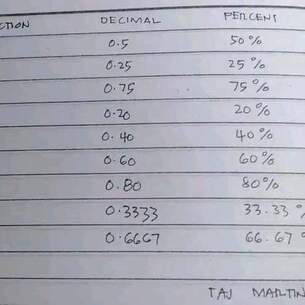 CTION DECIMAL PERCENT
0.5 50%
0.25 25%
0.75 75%
0.20 20%
0.40 40%
0.60 60%
0.80 80%
0.3333 33.33%
0.6667 66.67%
TAJ MARTIN